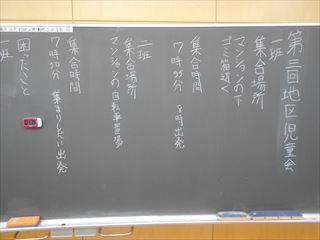 第三回地区児童会
一班
集合場所
マンションの下
ゴミ箱近く
集合時間
7時55分 8時出発
二班
集合場所
マンションの自転車置場
集合時間
7時50分 集まりしだい出発
困ったこと
一班